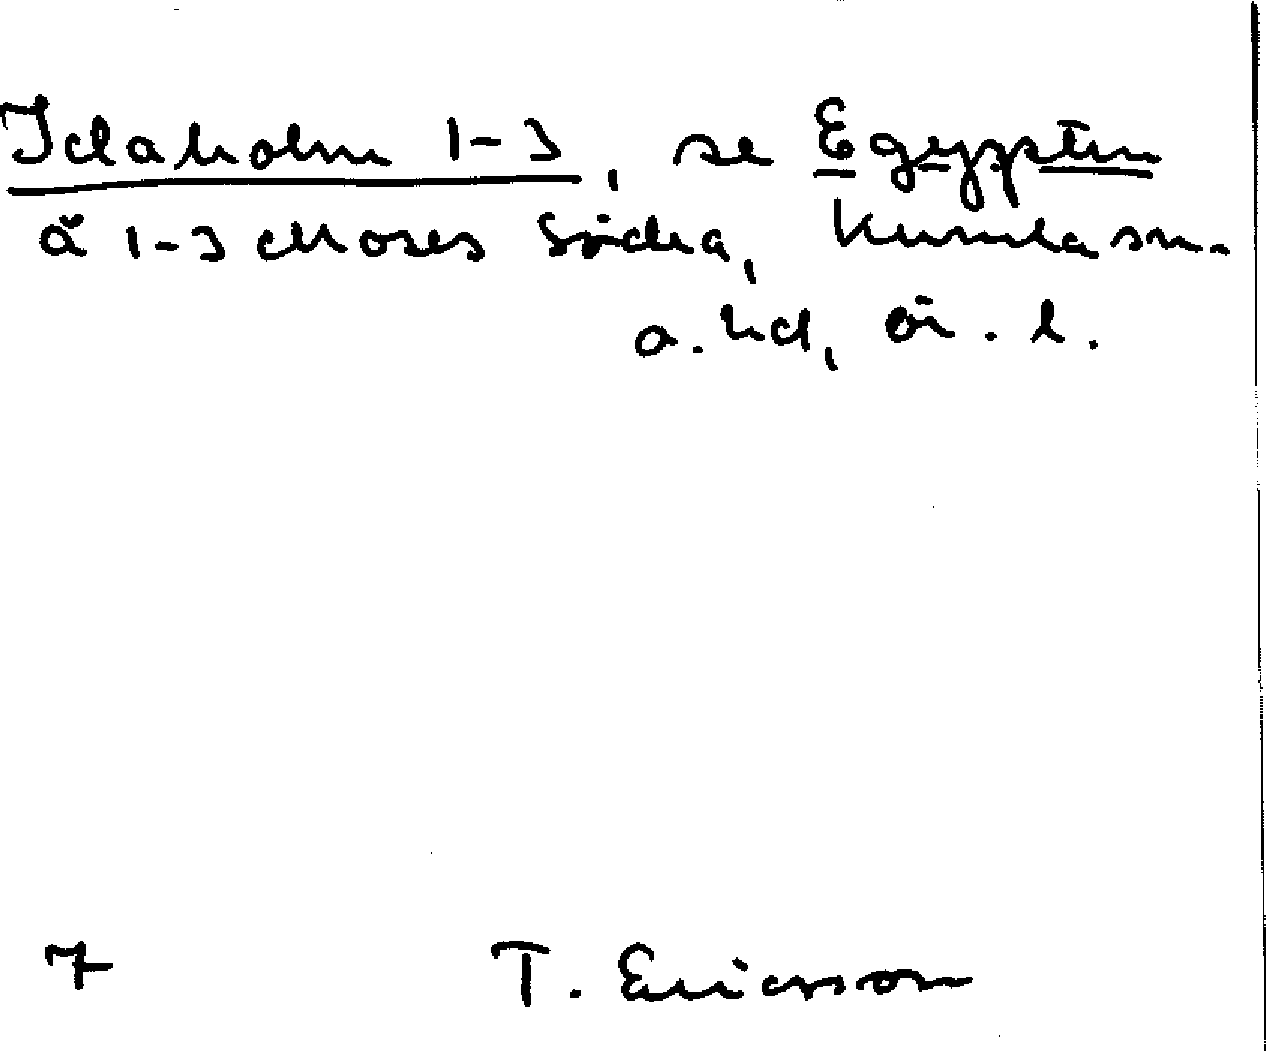 Idaholm 1-3, se Egypten
å 1-3 Moses Södra, Kumla sn.
a. hd, ör. l.
7 T. Ericsson